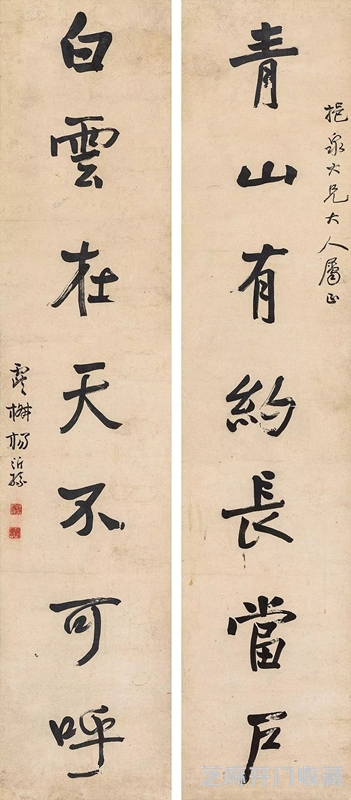 挹泉大兄大人屬正
青山有約長當戶
白雲在天不可呼
楊沂孫
芝麻开门收藏